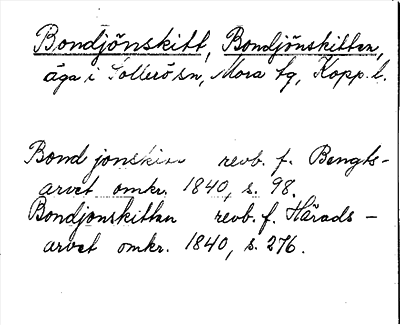 Bondjönskitt, Bondjönskitten,
äga i Sollerö sn, Mora tg, Kopp. l.
Bondjonskitten revb. f. Bengts-
arvet omkr. 1840, s. 98.
Bondjonskitten revb. f. Härads-
arvet omkr. 1840, s. 276.